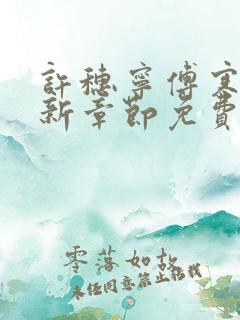 許穗寧傅寒
新章節免費
零落如故
未經同意禁止搭載